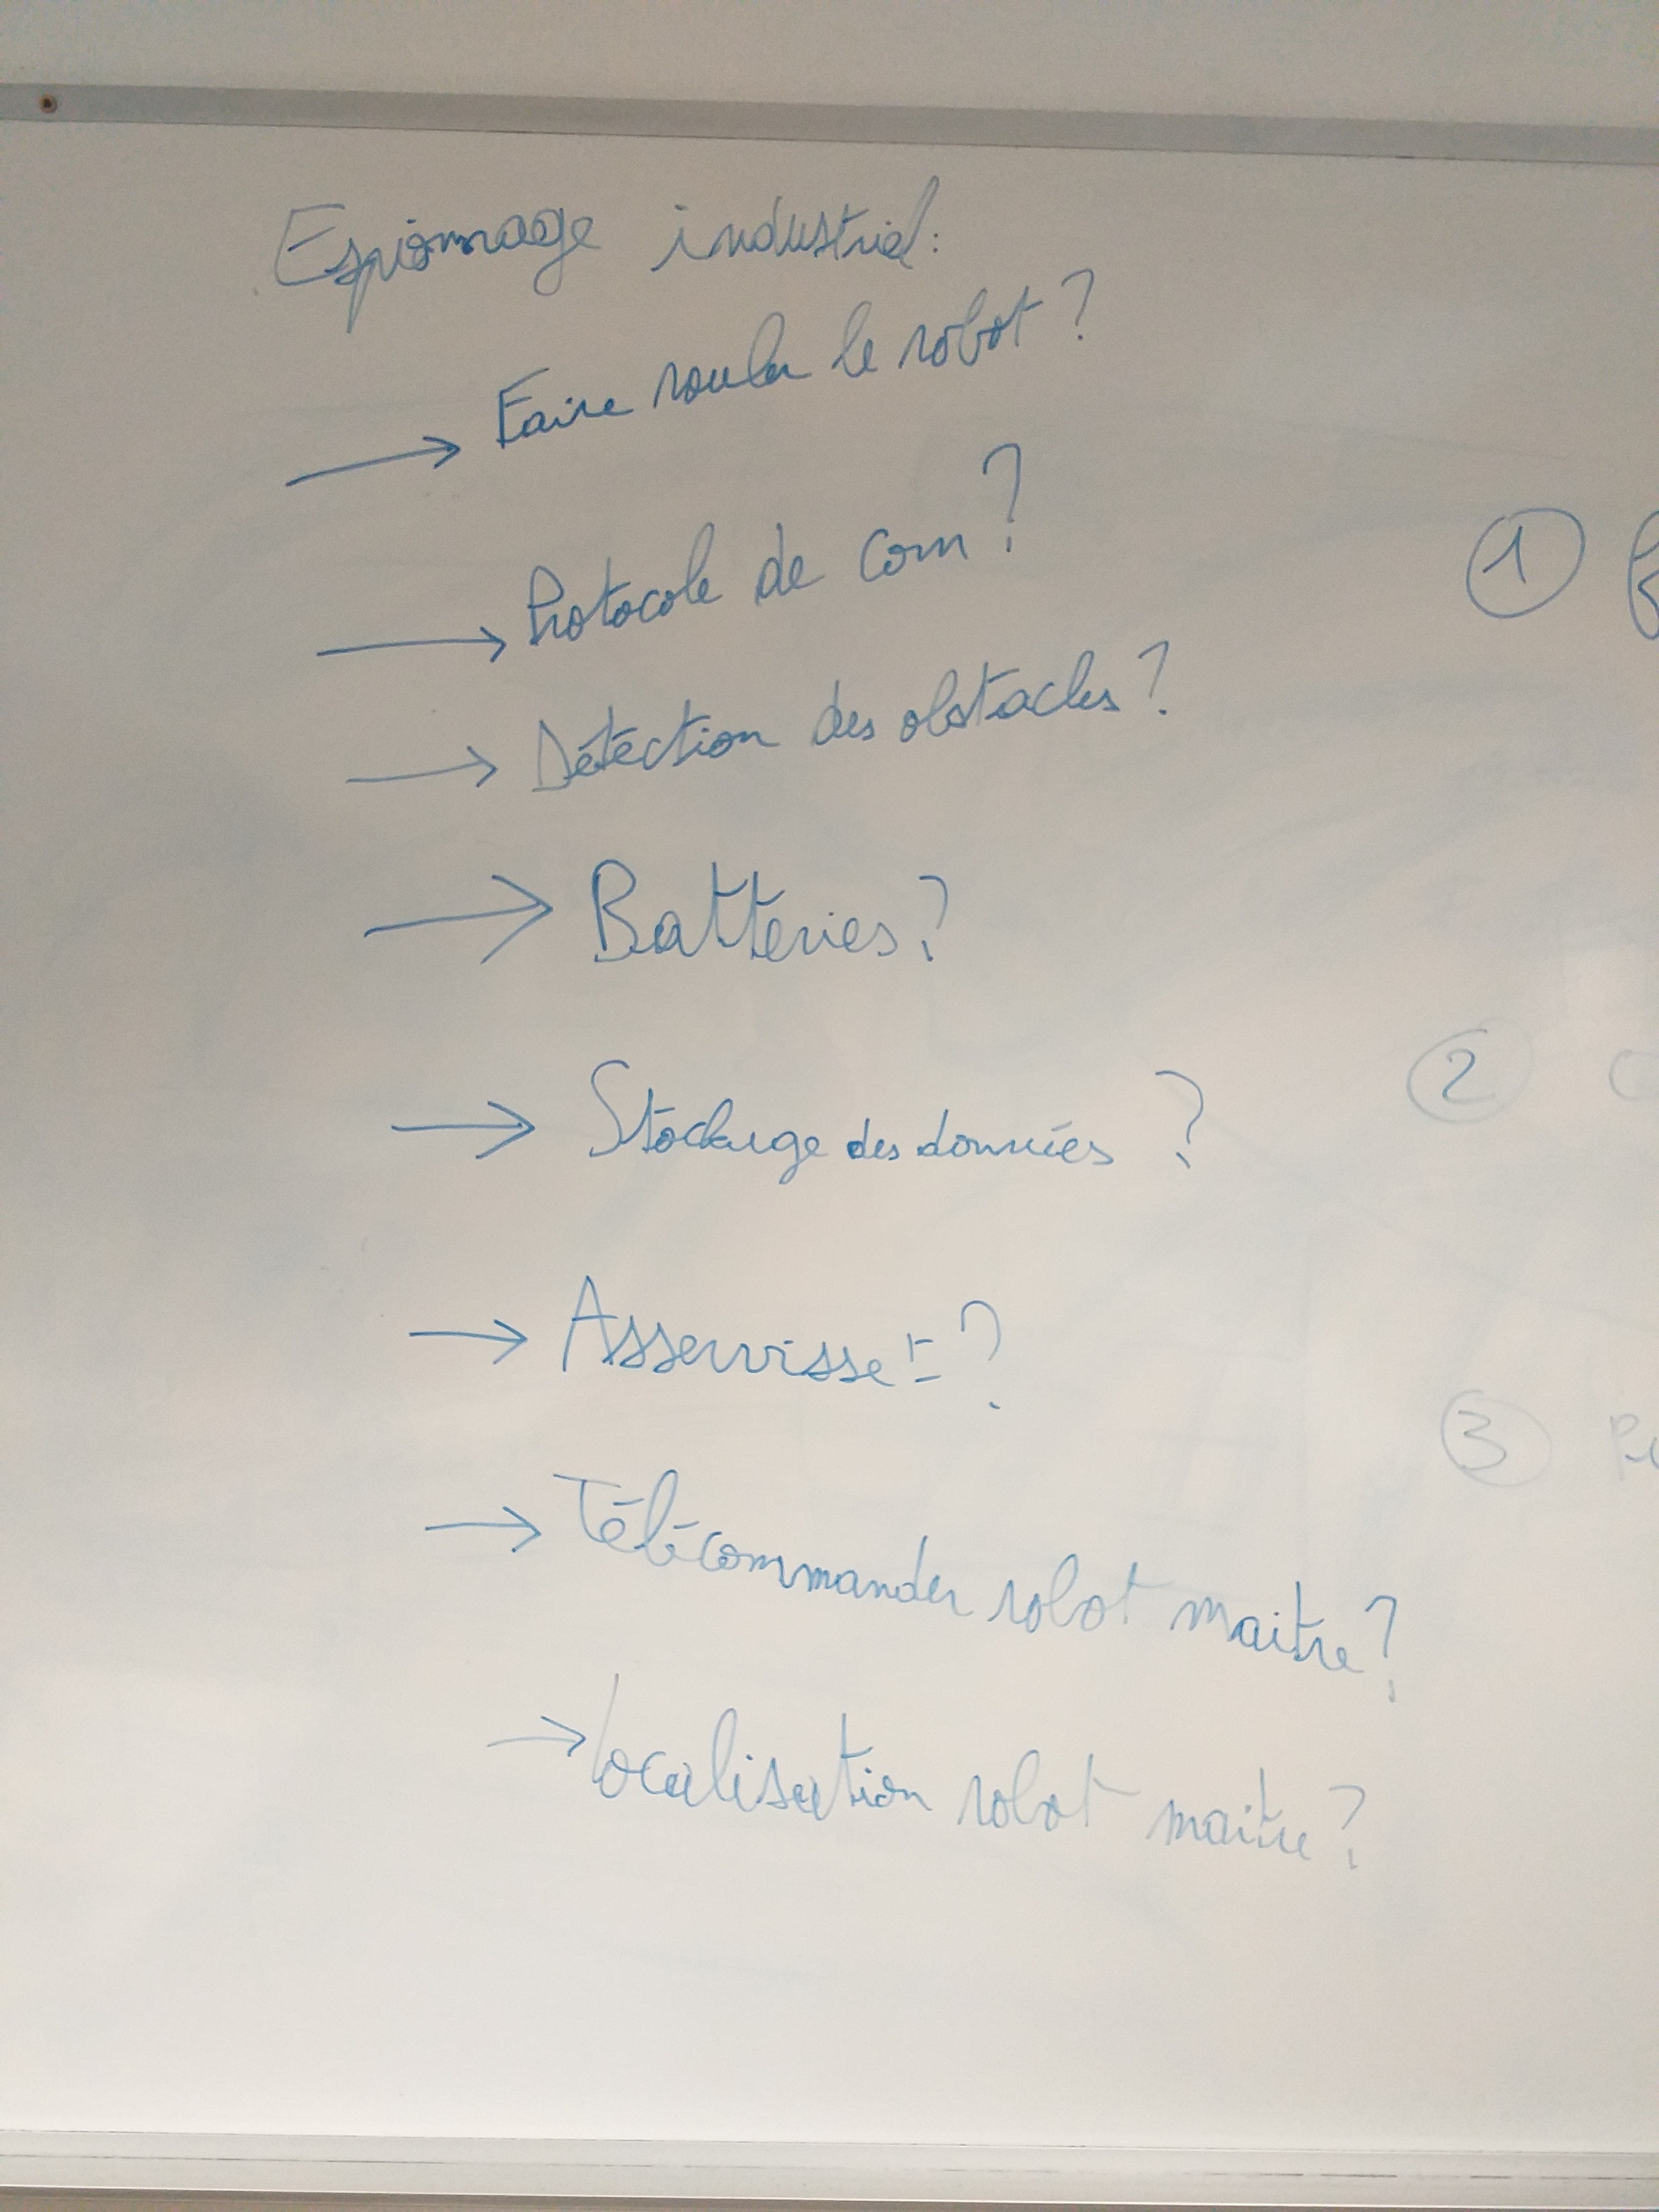 Espionnage industriel:
→ Faire rouler le robot ?
→ Protocole de com ?
→ Détéction des obstacles ?
→ Batteries ?
→ Stockage des données ?
→ Asservisse^t ?
→ Télécommander robot maitre ?
→ Localisation robot maitre ?
1
2
3